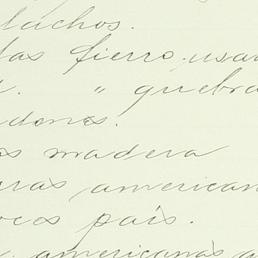 lachos.
das fierro, usar
" quebra
dores.
os madera
uras american
ocos país.
americanas a